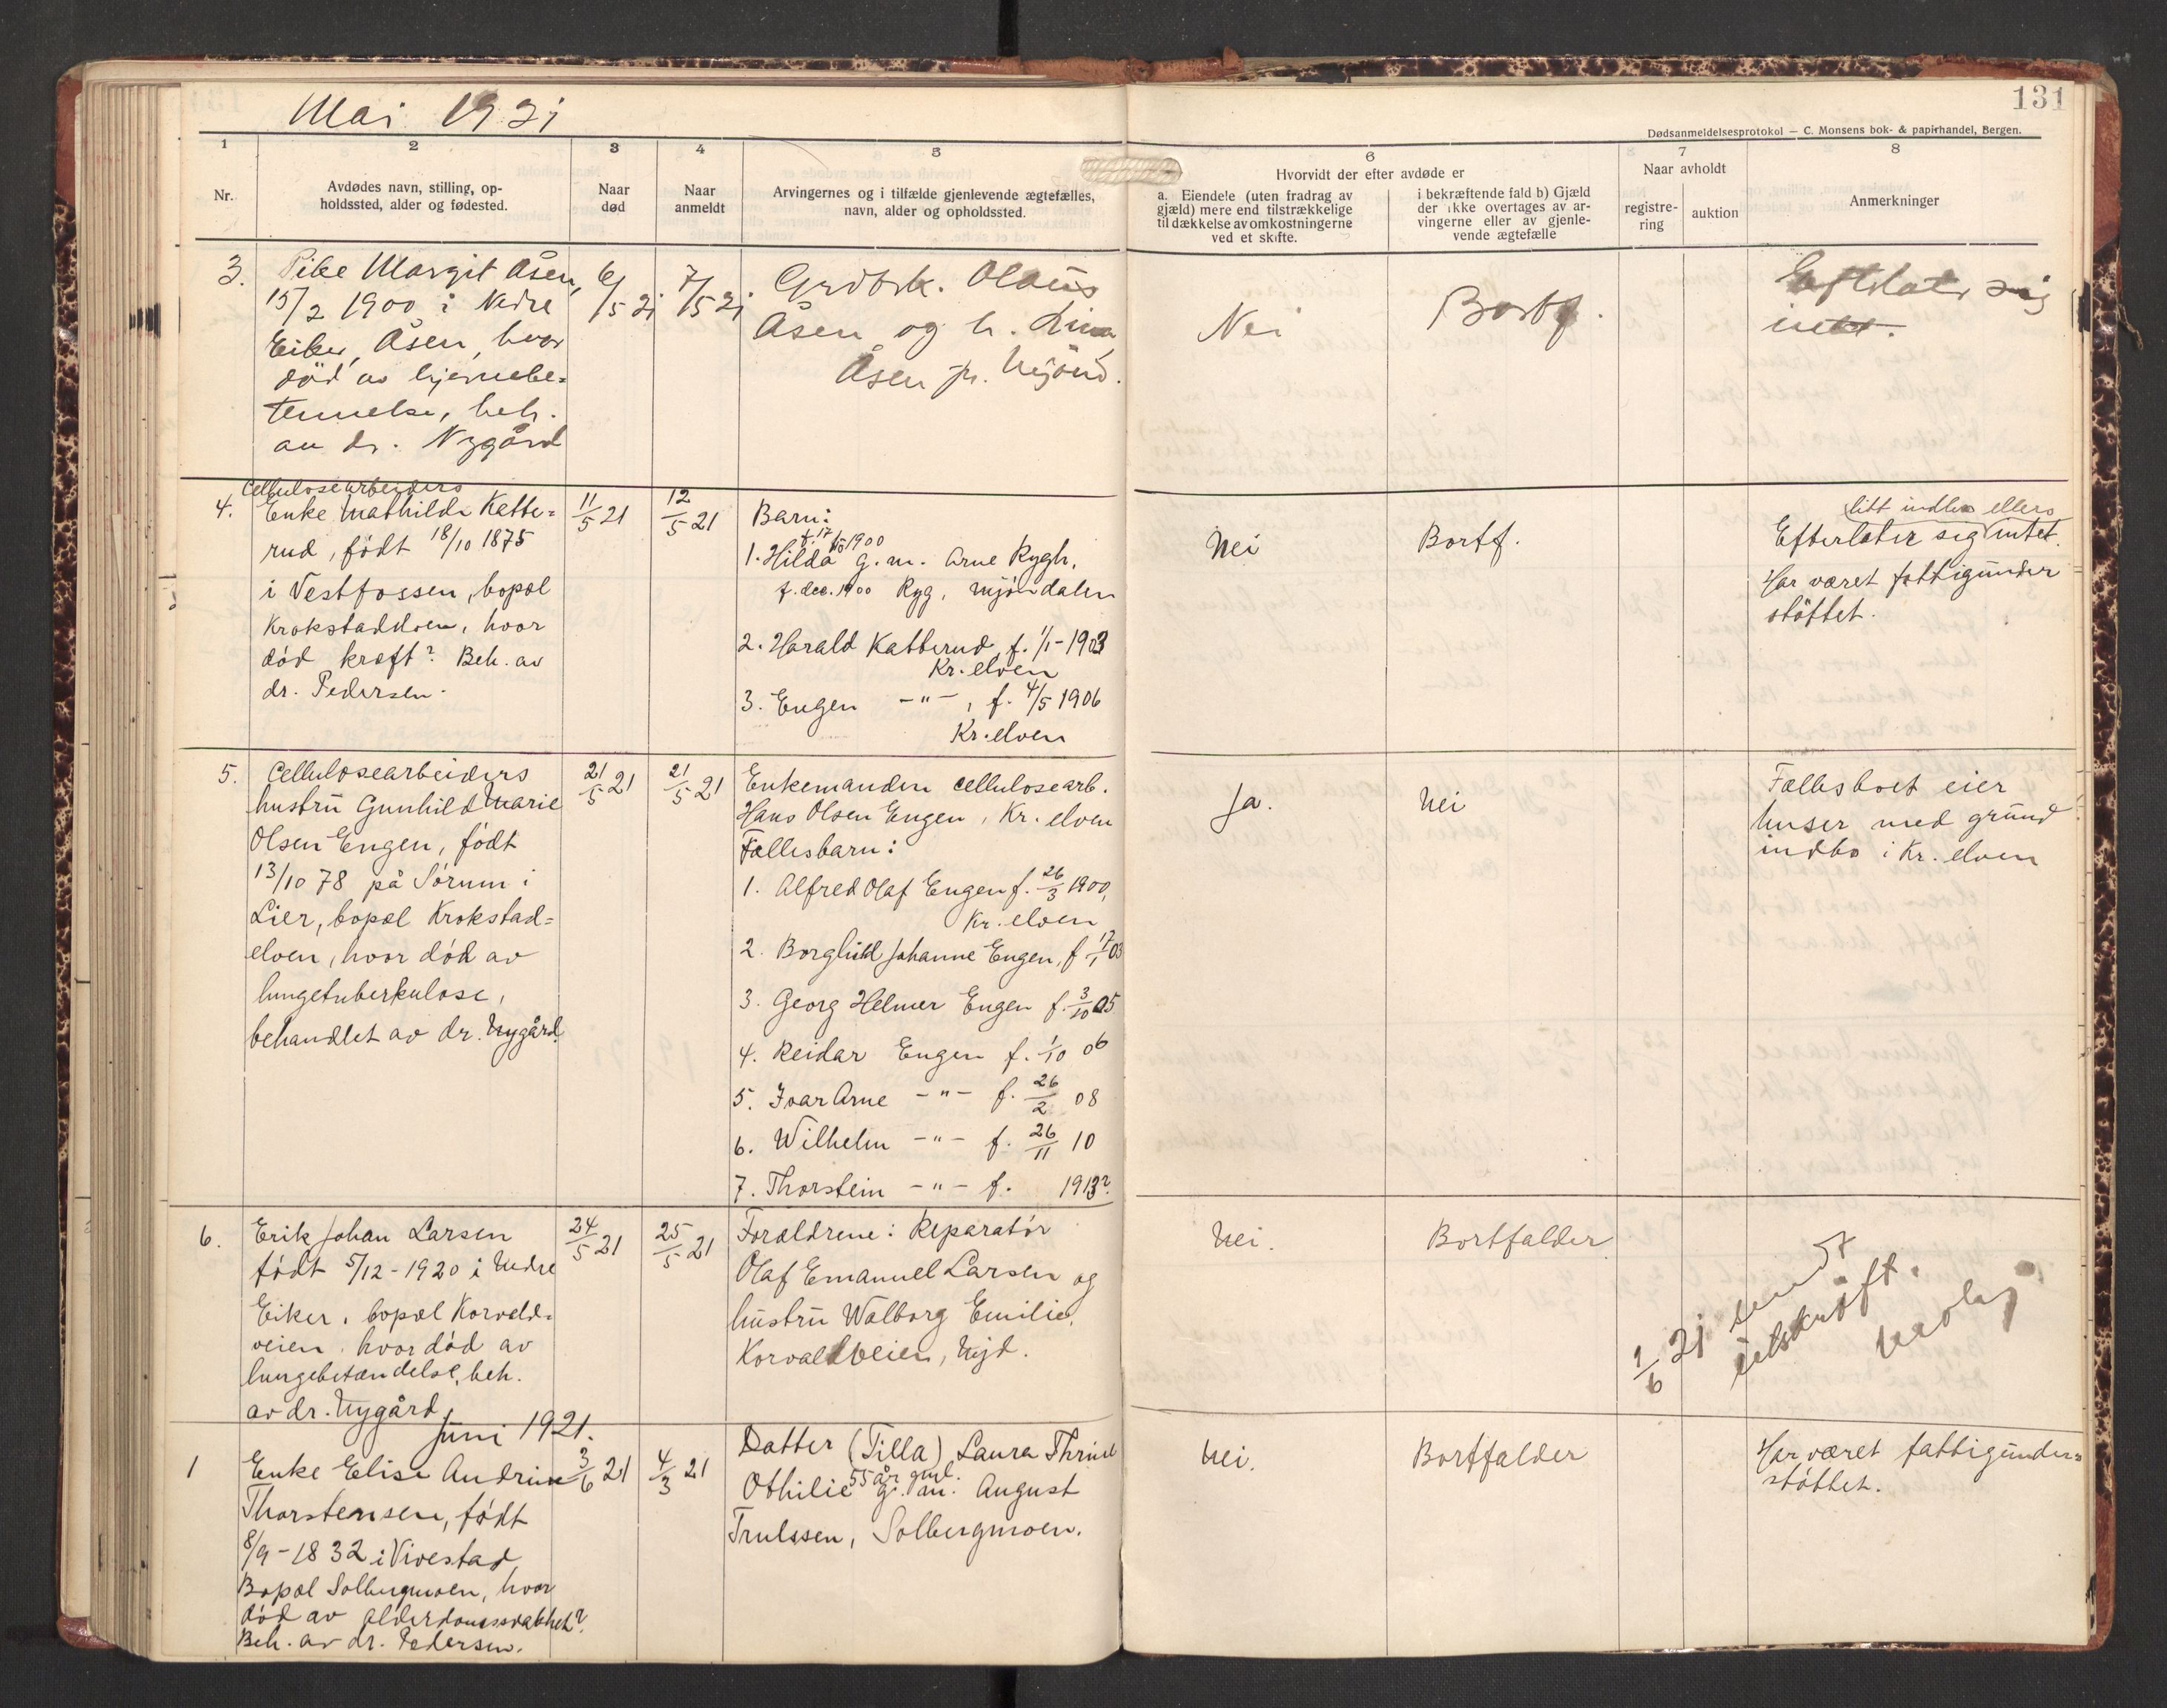 Mai 1921
131
Dødsanmeldelsesprotokol — C. Monsens bok- & papirhandel, Bergen.
1
Nr.
2
Avdødes navn, stilling, op-
holdssted, alder og fødested.
3
Naar
død
4
Naar
anmeldt
5
Arvingernes og i tilfælde gjenlevende ægtefælles,
navn, alder og opholdssted.
6
Hvorvidt der efter avdøde er
a. Eiendele (uten fradrag av
gjæld) mere end tilstrækkelige
til dækkelse av omkostningerne
ved et skifte.
i bekræftende fald b) Gjæld
der ikke overtages av ar-
vingerne eller av gjenle-
vende ægtefælle
7
Naar avholdt
registre-
ring
auktion
8
Anmerkninger
3.
Pike Margit Åsen,
15/2 1900 i Nedre
Eiker, Åsen, hvor
död av hjernebe-
tennelse, beh.
au dr. Nygård
6/5 21
7/5 21
Grdbrk. Olaus
Åsen og h. Lina
Åsen pr. Mjönd.
Nei
Bortf.
Efterlater sig
intet.
4.
Cellulosearbeiders
Enke Mathilde Katte-
rud, født 18/10 1875
i Vestfossen, bopæl
Krokstadelven, hvor
død kræft? Beh. av
dr. Pedersen.
11/5 21
12/5 21
Barn:
f. 17/10 1900
1. Hilda g. m. Arne Rygh,
f. dec. 1900 Ryg, Mjøndalen
2. Harald Katterud, f. 1/1-1903
Kr. elven
3. Eugen -"-, f. 4/5 1906
Kr. elven
Nei
Bortf.
litt indbo ellers
Efterlater sig intet.
Har været fattigunder
støttet.
5.
Cellulosearbeiders
hustru Gunhild Marie
Olsen Engen, født
13/10 78 på Sørum i
Lier, bopæl Krokstad-
elven, hvor død av
lungetuberkulose,
behandlet av dr. Nygård.
21/5 21
21/5 21
Enkemanden cellulosearb.
Hans Olsen Engen, Kr. elven
Fællesbarn:
1. Alfred Olaf Engen f. 26/3 1900,
Kr. elven
2. Borghild Johanne Engen, f 17/1 03
3. Georg Helmer Engen f. 3/10 05
4. Reidar Engen f. 1/10 06
5. Ivar Arne -"- f. 26/2 08
6. Wilhelm -"- f. 26/11 10
7. Thorstein -"- f. 1913?
Ja.
Nei
Fællesboet eier
huser med grund
indbo i Kr. elven
6.
Erik Johan Larsen
født 5/12-1920 i Nedre
Eiker, bopæl Korvald-
veien, hvor død av
lungebetændelse, beh.
av dr. Nygård.
24/5 21
25/5 21
Forældrene: Reparatør
Olaf Emanuel Larsen og
hustru Walborg Emilie,
Korvaldveien, Mjd.
Nei.
Bortfalder
1/6 21 sendt
utskrift.
Juni 1921.
1
Enke Elise Andrine
Thorstensen, født
8/9-1832 i Vivestad,
Bopæl Solbergmoen, hvor
død av alderdomssvakhet?
Beh. av dr. Pedersen.
3/6 21
4/3 21
Datter (Tilla) Laura Thrine
Othilie 55 år gml. g. m. August
Trulssen, Solbergmoen.
Nei.
Bortfalder
Har været fattigunder-
støttet.